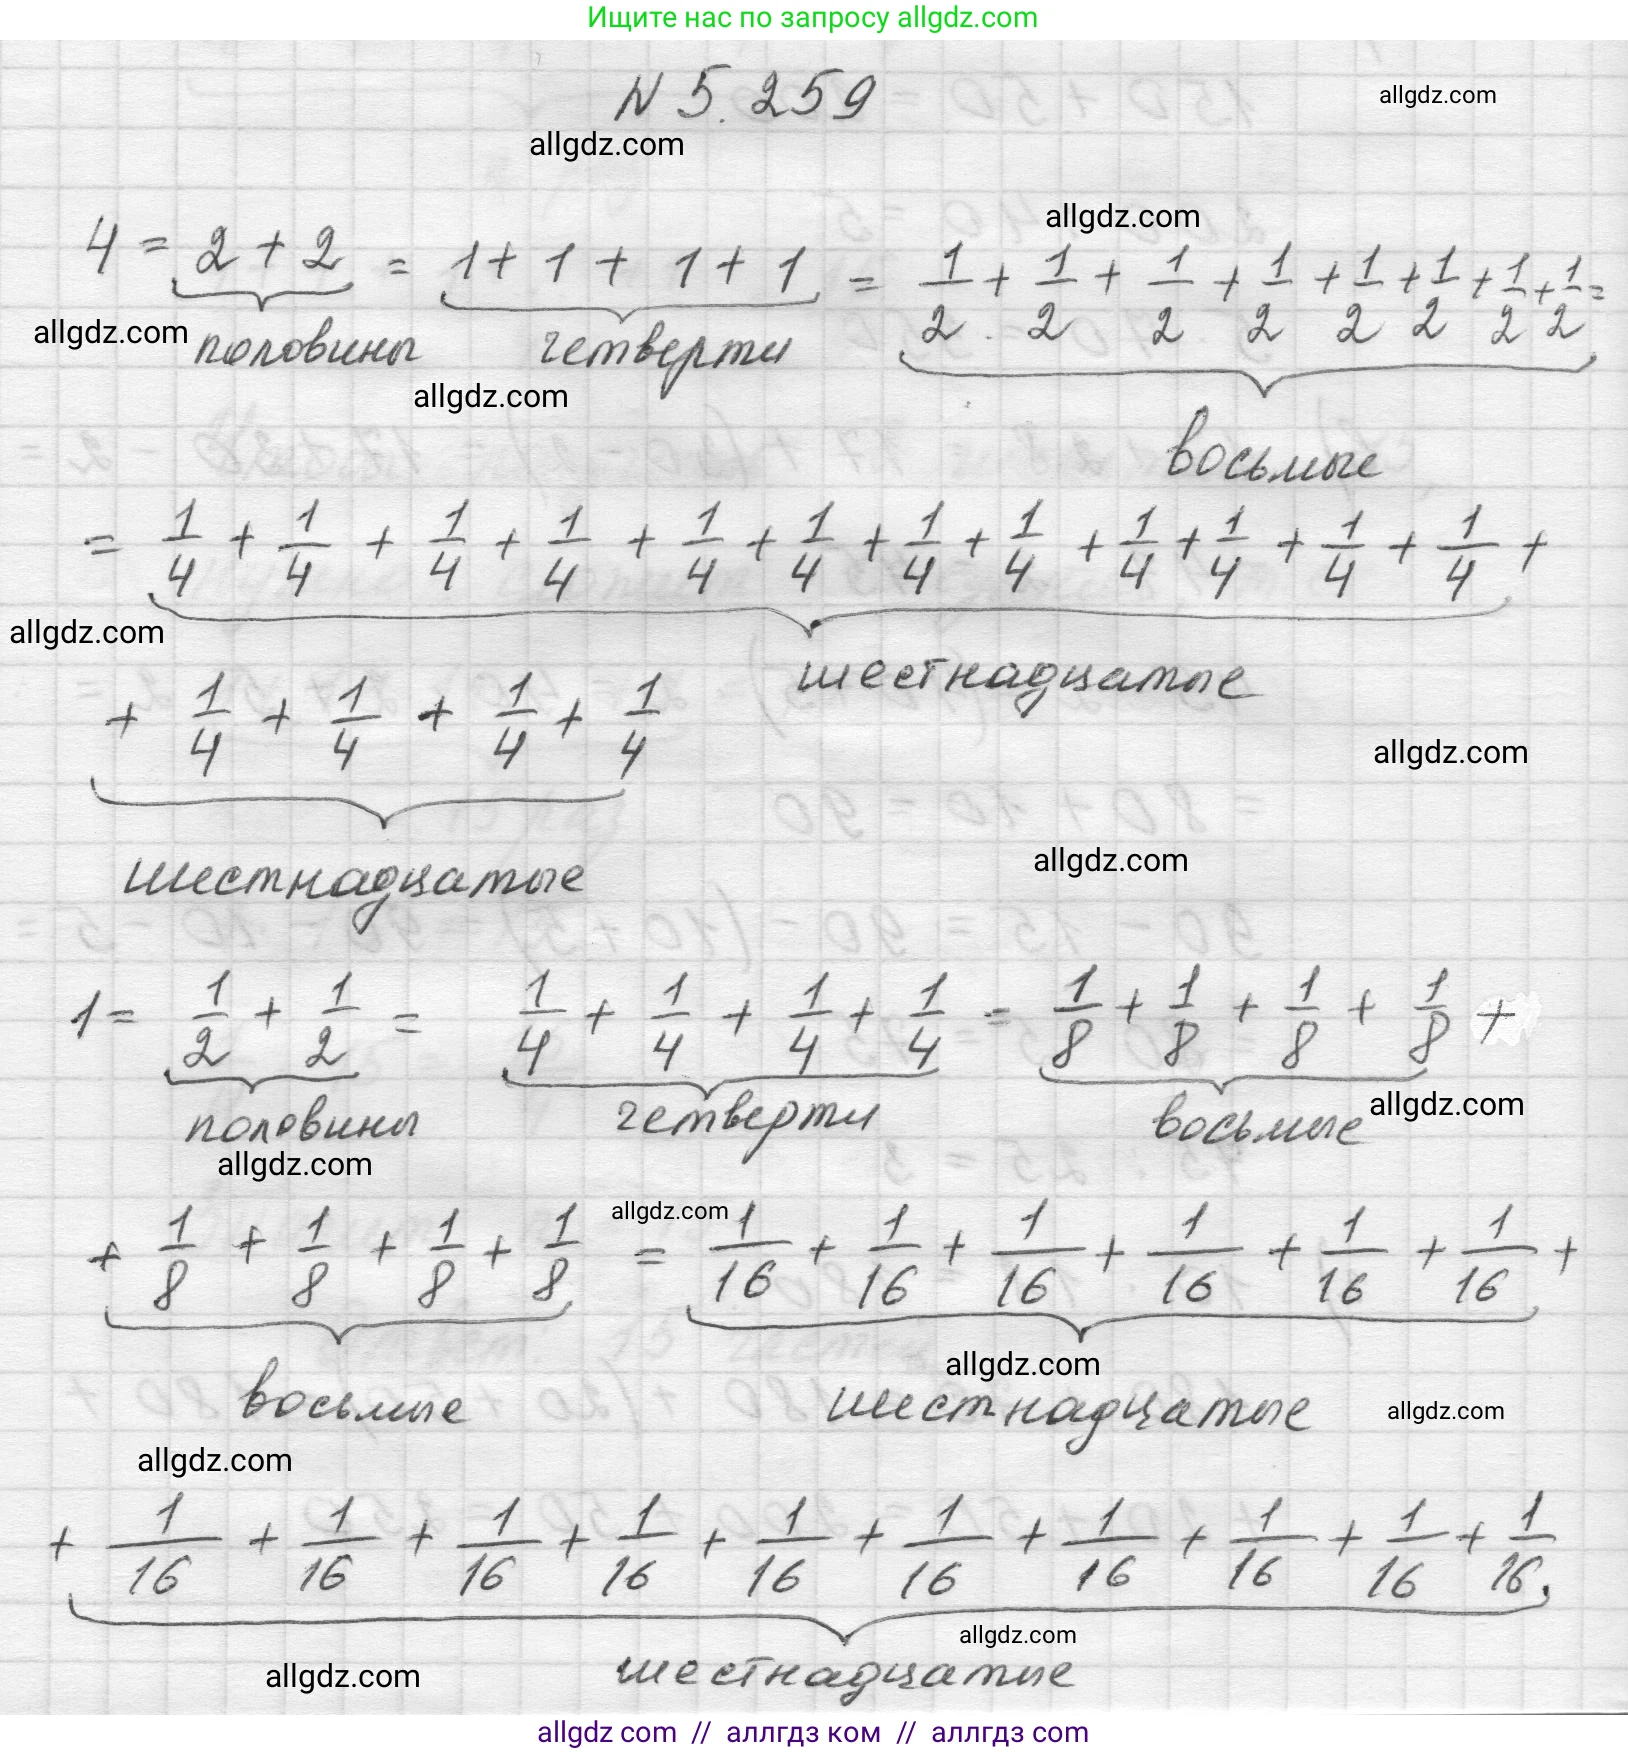 Ищите нас по запросу allgdz.com
N 5.259
allgdz.com
allgdz.com
allgdz.com
4 = 2 + 2 = 1 + 1 + 1 + 1 = 1/2 + 1/2 + 1/2 + 1/2 + 1/2 + 1/2 + 1/2 + 1/2 =
allgdz.com
половины четверти
allgdz.com
восьмые
= 1/4 + 1/4 + 1/4 + 1/4 + 1/4 + 1/4 + 1/4 + 1/4 + 1/4 + 1/4 + 1/4 + 1/4 +
allgdz.com
шестнадцатые
+ 1/4 + 1/4 + 1/4 + 1/4
allgdz.com
шестнадцатые
allgdz.com
1 = 1/2 + 1/2 = 1/4 + 1/4 + 1/4 + 1/4 = 1/8 + 1/8 + 1/8 + 1/8 +
половины четверти восьмые
allgdz.com
allgdz.com
allgdz.com
+ 1/8 + 1/8 + 1/8 + 1/8 = 1/16 + 1/16 + 1/16 + 1/16 + 1/16 + 1/16 +
allgdz.com
восьмые шестнадцатые
allgdz.com
allgdz.com
+ 1/16 + 1/16 + 1/16 + 1/16 + 1/16 + 1/16 + 1/16 + 1/16 + 1/16 + 1/16.
allgdz.com
шестнадцатые
allgdz.com
allgdz com // аллгдз ком // аллгдз com